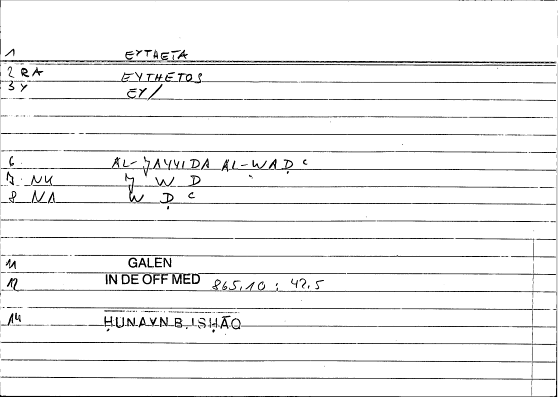 1 EYTHETA
2 RA EYTHETOS
3 Y EY/
6 AL-JAYYIDA AL-WAḌ ͨ
7 NU J W D
8 NA W Ḍ ͨ
11 GALEN
12 IN DE OFF MED 865,10 : 42.5
14 ḤUNAYN B. ISḤĀQ